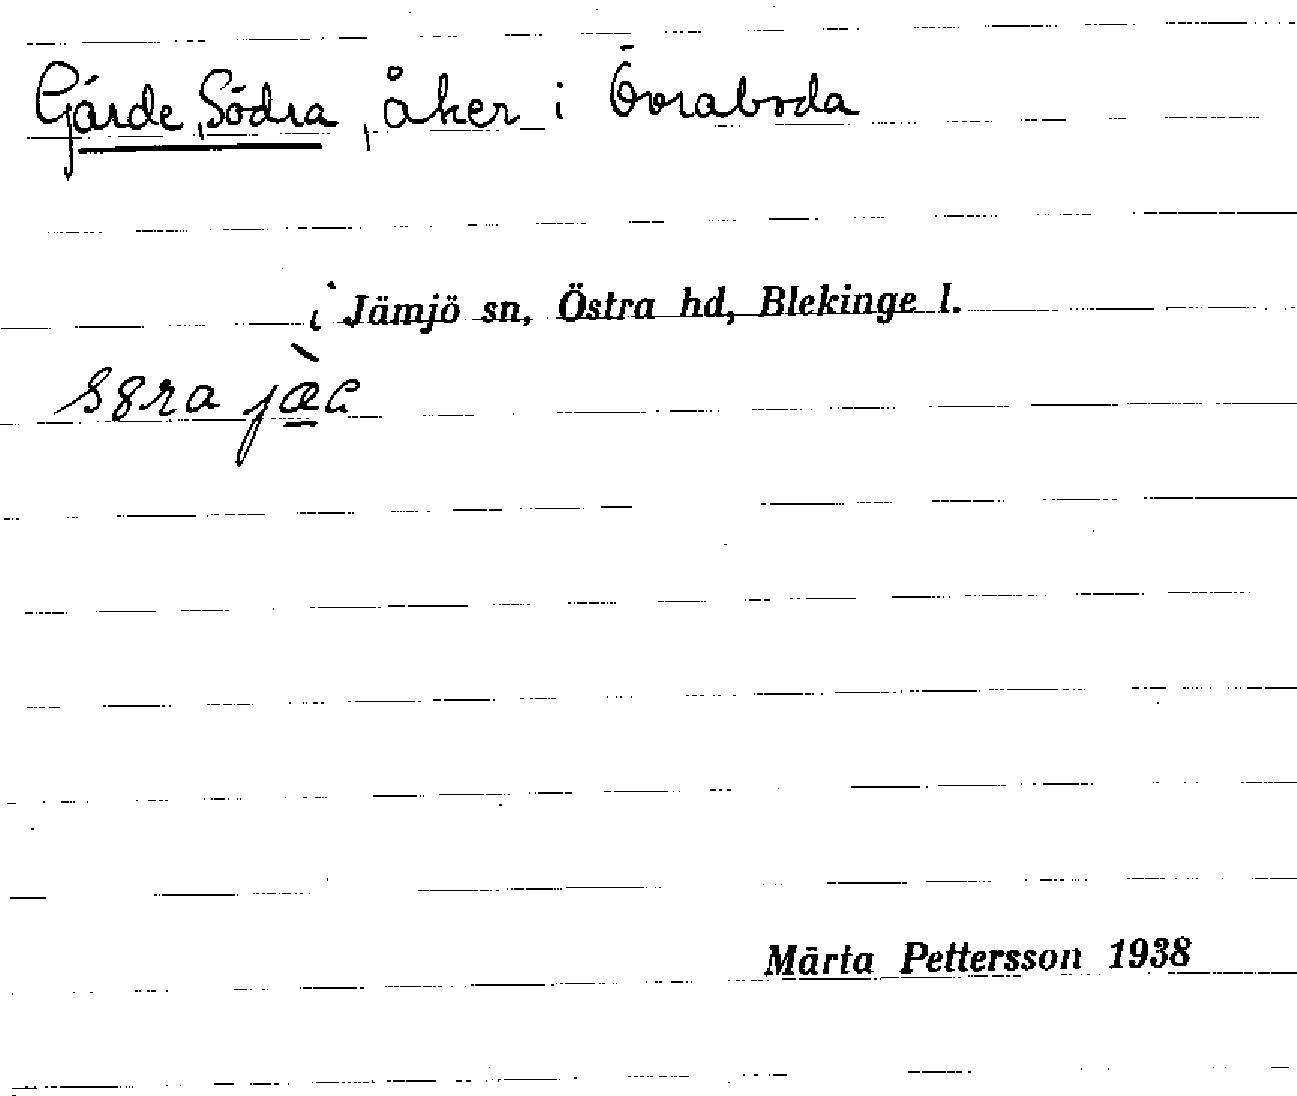 Gärde, Södra, åker i Övraboda
i Jämjö sn, Östra hd, Blekinge l.
Märta Pettersson 1938